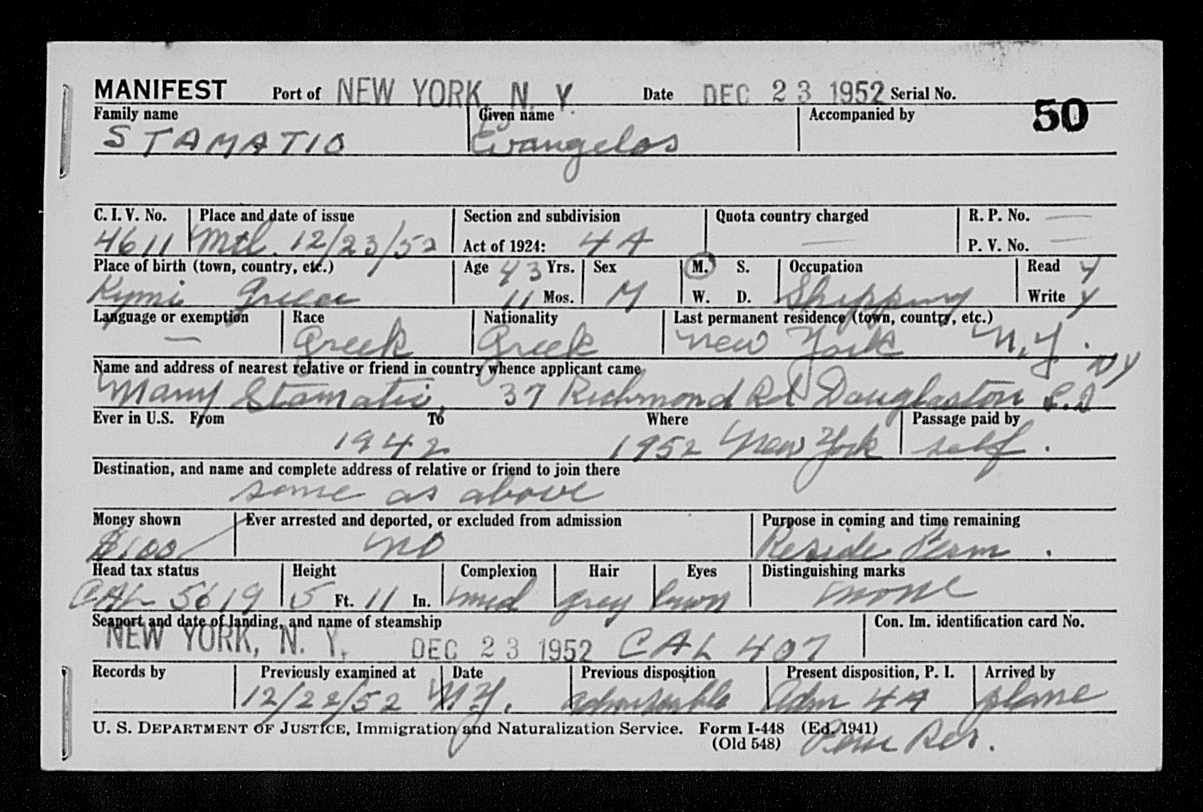 MANIFEST Port of NEW YORK, N. Y. Date DEC 23 1952 Serial No.
Family name Given name Accompanied by 50
STAMATIO Evangelos
C. I. V. No. Place and date of issue Section and subdivision Quota country charged R. P. No. —
4611 Mtl. 12/23/52 Act of 1924: 4A — P. V. No. —
Place of birth (town, country, etc.) Age 43 Yrs. Sex M. S. Occupation Read y
Kymi Greece 11 Mos. M W. D. Shipping Write y
Language or exemption Race Nationality Last permanent residence (town, country, etc.)
— Greek Greek New York N.Y.
Name and address of nearest relative or friend in country whence applicant came
Mary Stamatio, 37 Richmond Rd Douglaston L.I NY
Ever in U.S. From To Where Passage paid by
1942 1952 New York self.
Destination, and name and complete address of relative or friend to join there
same as above
Money shown Ever arrested and deported, or excluded from admission Purpose in coming and time remaining
$100 NO Reside Perm.
Head tax status Height Complexion Hair Eyes Distinguishing marks
CAL 5619 5 Ft. 11 In. med grey brwn none
Seaport and date of landing, and name of steamship Con. Im. identification card No.
NEW YORK, N. Y. DEC 23 1952 CAL 407
Records by Previously examined at Date Previous disposition Present disposition, P. I. Arrived by
12/22/52 N.Y. admissible Adm 4A plane
U. S. DEPARTMENT OF JUSTICE, Immigration and Naturalization Service. Form I-448 (Ed. 1941)
(Old 548) Perm Res.